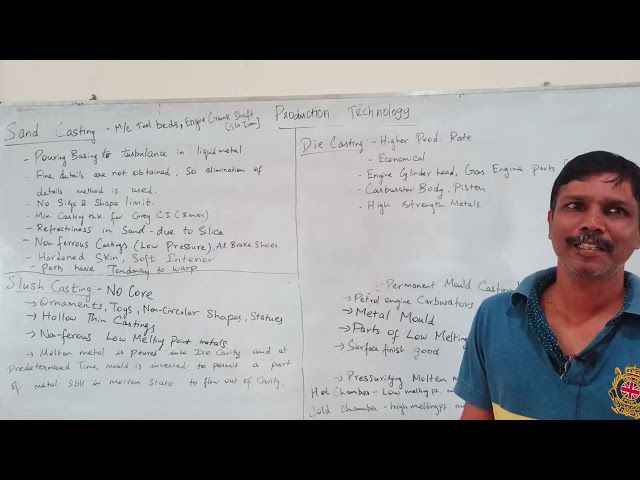 Production Technology
Sand Casting:- M/c Tool beds, Engine Crank Shaft
- Pouring Basing to turbulance in liquid metal
- Fine details are not obtained. So alimation of
details method is used.
- No Size & Shape limit.
- Min Casting thk. for Grey CI (3mm)
- Refractiness in Sand - due to Silica
- Non ferrous Castings (Low Pressure), Al Brake Shoes.
- Hardened Skin, Soft Interior
- Parts have Tendancy to warp
Slush Casting:- No Core
→ Ornaments, Toys, Non-Circular Shapes, Statues
→ Hollow Thin Castings
→ No-ferous Low Melting Point metals
→ Molten metal is poured into Die Cavity and at
Predetermined Time, mould is invested to permit a part
of metal Still in molten State to flow out of Cavity.
Die Casting:- Higher Prod. Rate
- Economical
- Engine Cylinder head, Gas Engine Parts
- Carburator Body, Piston
- High Strength Metals.
:- Permanent Mould Casting
→ Petrol engine Carburators
→ Metal Mould
→ Parts of Low Melting
→ Surface finish good
→ Pressurizing Molten
Hot Chamber - Low melting pt.
Cold Chamber - high melting pt.